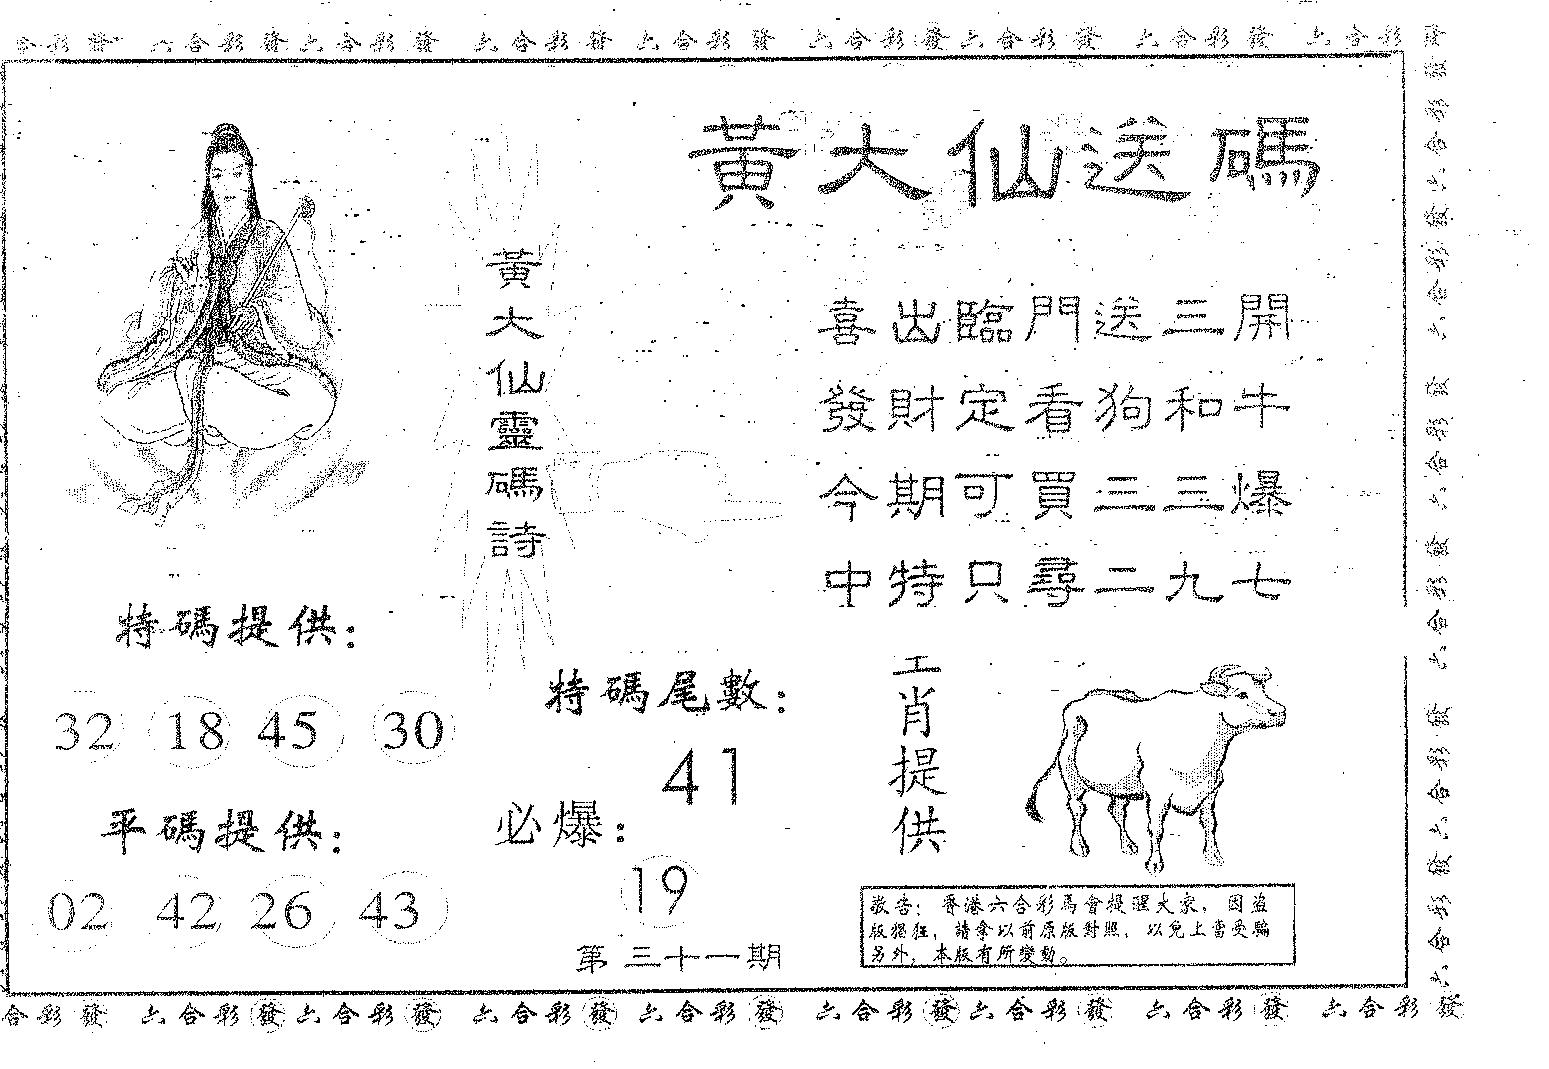 合彩發 六合彩發六合彩發 六合彩發 六合彩發 六合彩發六合彩發 六合彩發 六合彩發
黃大仙送碼
黃大仙靈碼詩
喜出臨門送三開
發財定看狗和牛
今期可買三三爆
中特只尋二九七
特碼提供:
32 18 45 30
特碼尾數:
41
平碼提供:
02 42 26 43
必爆:
19
第三十一期
肖提供
敬告:香港六合彩馬會提醒大家,因盜
版猖狂,請拿以前原版對照,以免上當受騙
另外,本版有所變動。
發彩合六發彩合六發彩合六發彩合六發彩合六發彩合六
合彩發 六合彩發六合彩發 六合彩發 六合彩發 六合彩發六合彩發 六合彩發 六合彩發